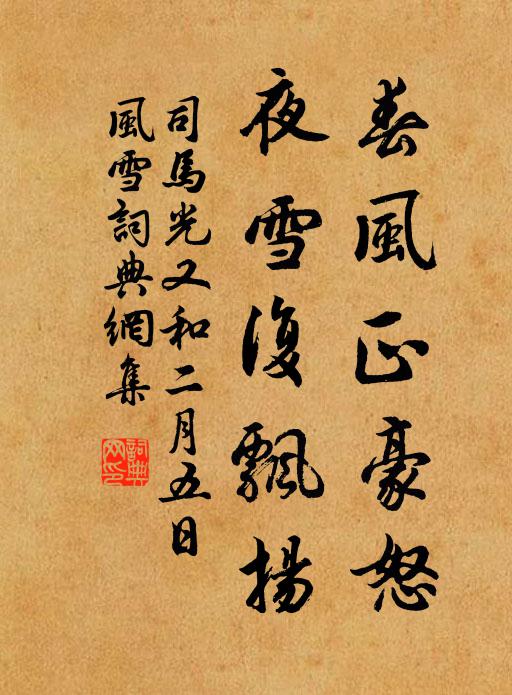 春風正豪怒
夜雪復飄揚
司馬光又和二月五日
風雪詞典網集
詞典
网印